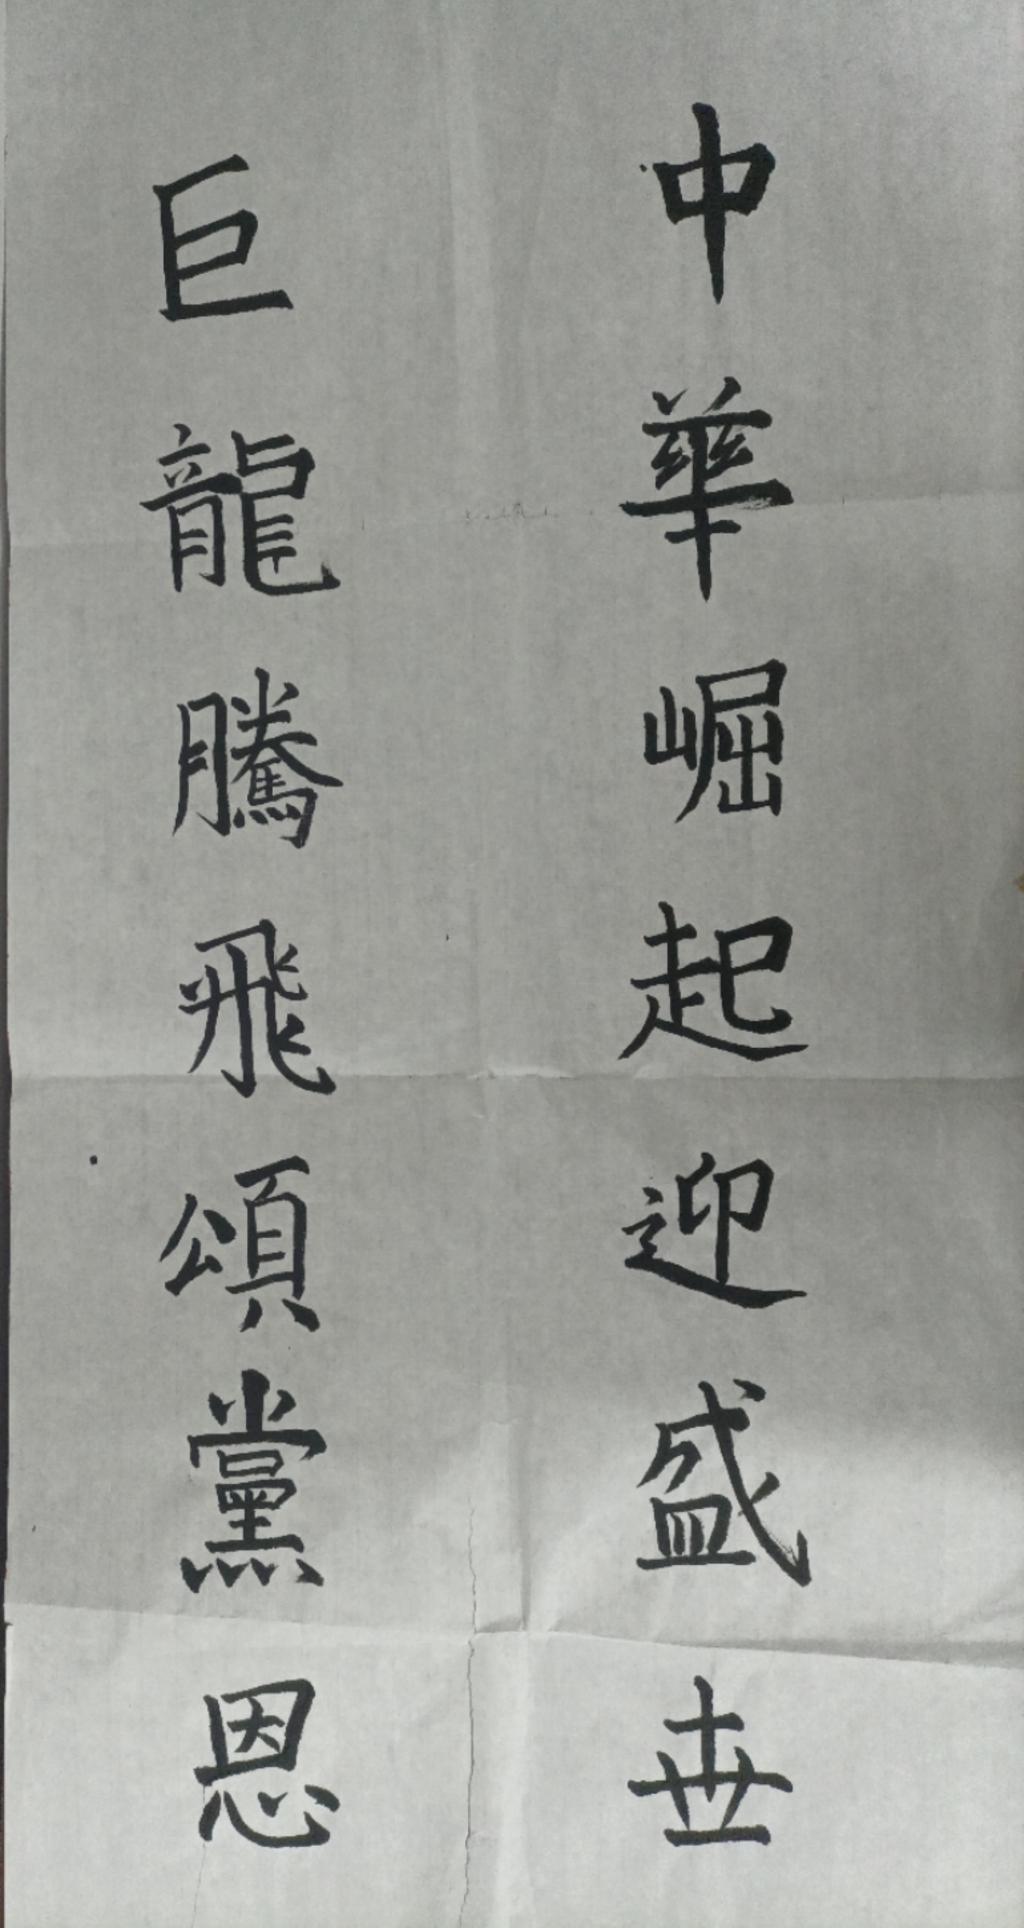 中華崛起迎盛世
巨龍騰飛頌黨恩